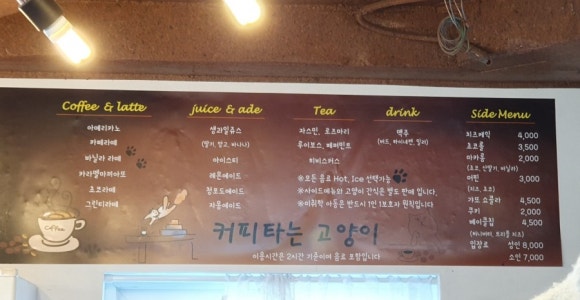 Coffee & latte
아메리카노
카페라떼
바닐라 라떼
카라멜마끼아또
초코라떼
그린티라떼
juice & ade
생과일쥬스
(딸기, 망고, 바나나)
아이스티
레몬에이드
청포도에이드
자몽에이드
Tea
자스민, 로즈마리
루이보스, 페퍼민트
히비스커스
※모든 음료 Hot, Ice 선택가능
※사이드메뉴와 고양이 간식은 별도 판매 입니다.
※미취학 아동은 반드시 1인 1보호자 원칙입니다
drink
맥주
Side Menu
치즈케익 4,000
초코롤 3,500
마카롱 2,000
머핀 3,000
(치즈, 초코)
갸또 쇼콜라 4,500
쿠키 2,000
베이글칩 4,500
입장료 성인 8,000
소인 7,000
Coffee
커피타는 고양이
이용시간은 2시간 기준이며 음료 포함입니다